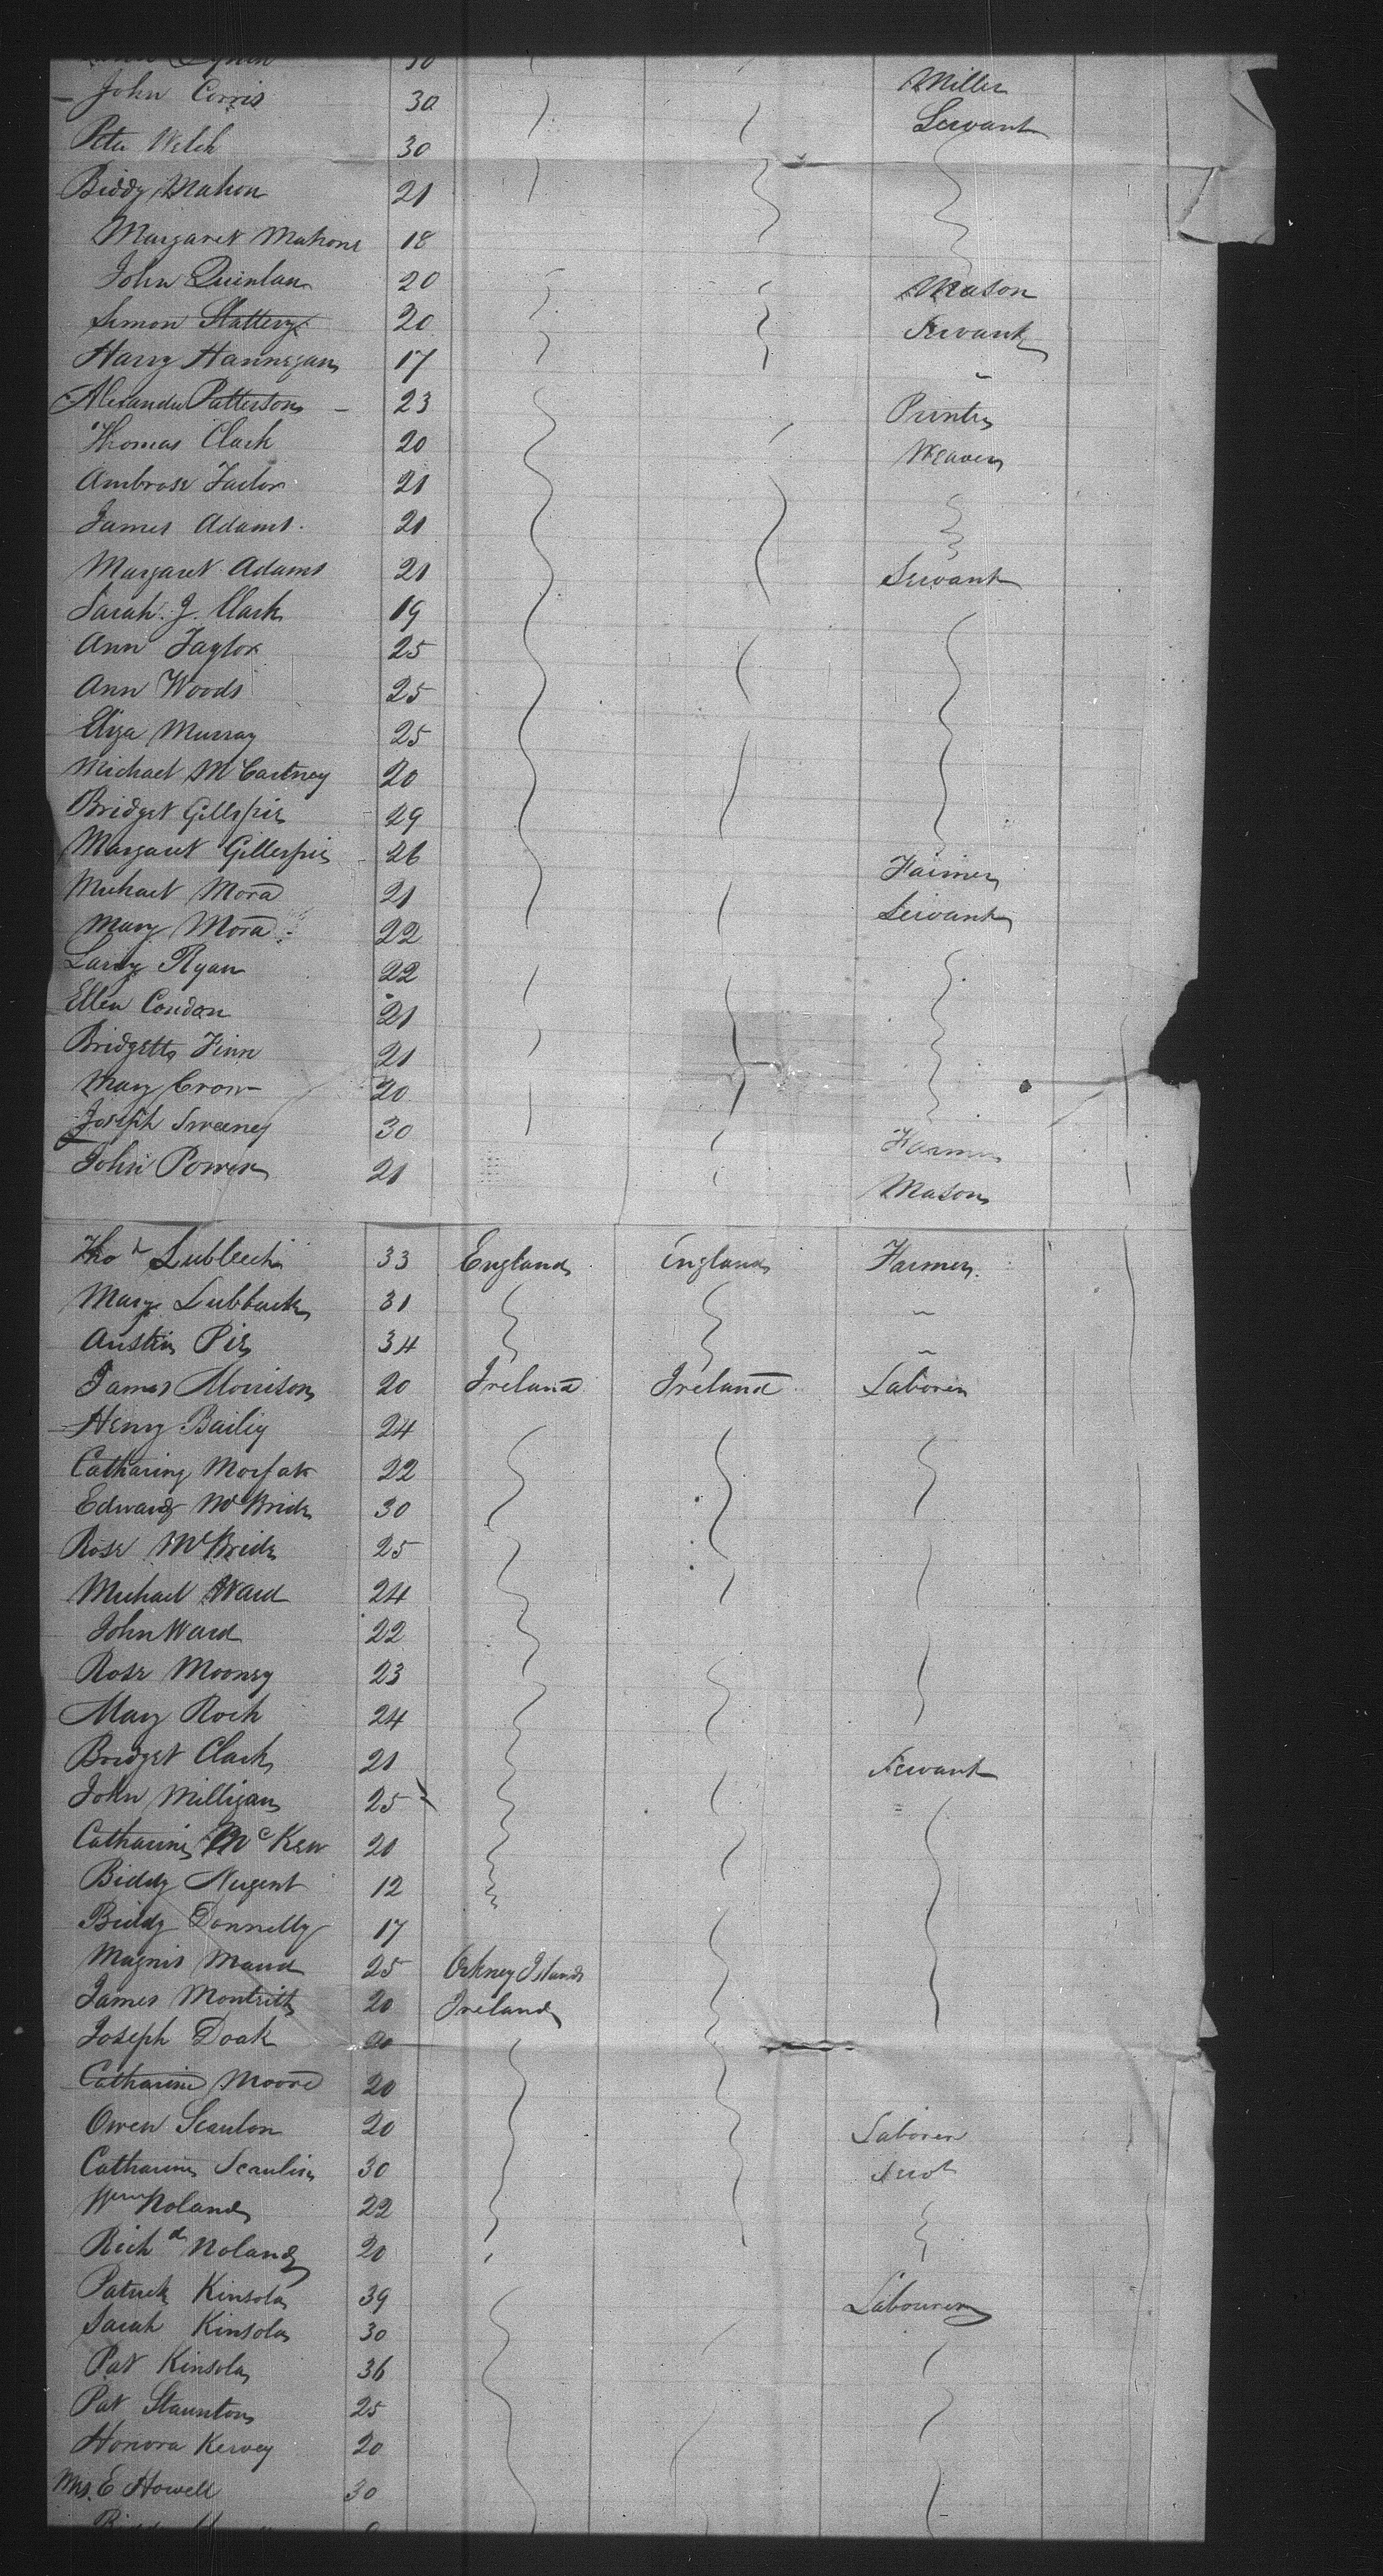 30
John Corris 30 Miller
Peter Welch 30 Servant
Biddy Mahon 21
Margaret Mahone 18
John Quinlan 20 Mason
Simon Slattery 20 Servant
Harry Hannegan 17
Alexander Patterson 23 Printer
Thomas Clark 20 Weaver
Ambrose Tailor 21
James Adams 21
Margaret Adams 21 Servant
Sarah J. Clark 19
Ann Taylor 25
Ann Woods 25
Eliza Murray 25
Michael McCartney 20
Bridget Gillespie 29
Margaret Gillespie 26
Michael Mora 21 Farmer
Mary Mora 22 Servant
Larry Ryan 22
Ellen Condon 21
Bridgett Finn 21
Mary Crow 20
Joseph Sweeney 30 Farmer
John Power 21 Mason
Thos 33 England England Farmer
Mary Lubback 31
Austin Pie 34
James Morrison 20 Ireland Ireland Laborer
Henry Bailey 24
Catharine 22
Edward McBride 30
Rose McBride 25
Michael Ward 24
John Ward 22
Rose Mooney 23
Mary Roch 24
Bridget Clark 21 Servant
John Milligan 25
Catharine McKew 20
Biddy Nugent 12
Biddy Donnelly 17
Magnis Maud 25 Orkney Islands
James 20 Ireland
Joseph Doak 20
Catharine Moore 20
Owen Scanlon 20 Laborer
Catharine Scanlin 30 Servt
Wm Noland 22
Richd Noland 20
Patrick Kinsola 39 Labourer
Sarah Kinsola 30
Pat Kinsola 36
Pat Staunton 25
Honora Kervey 20
Mrs. E Howell 30